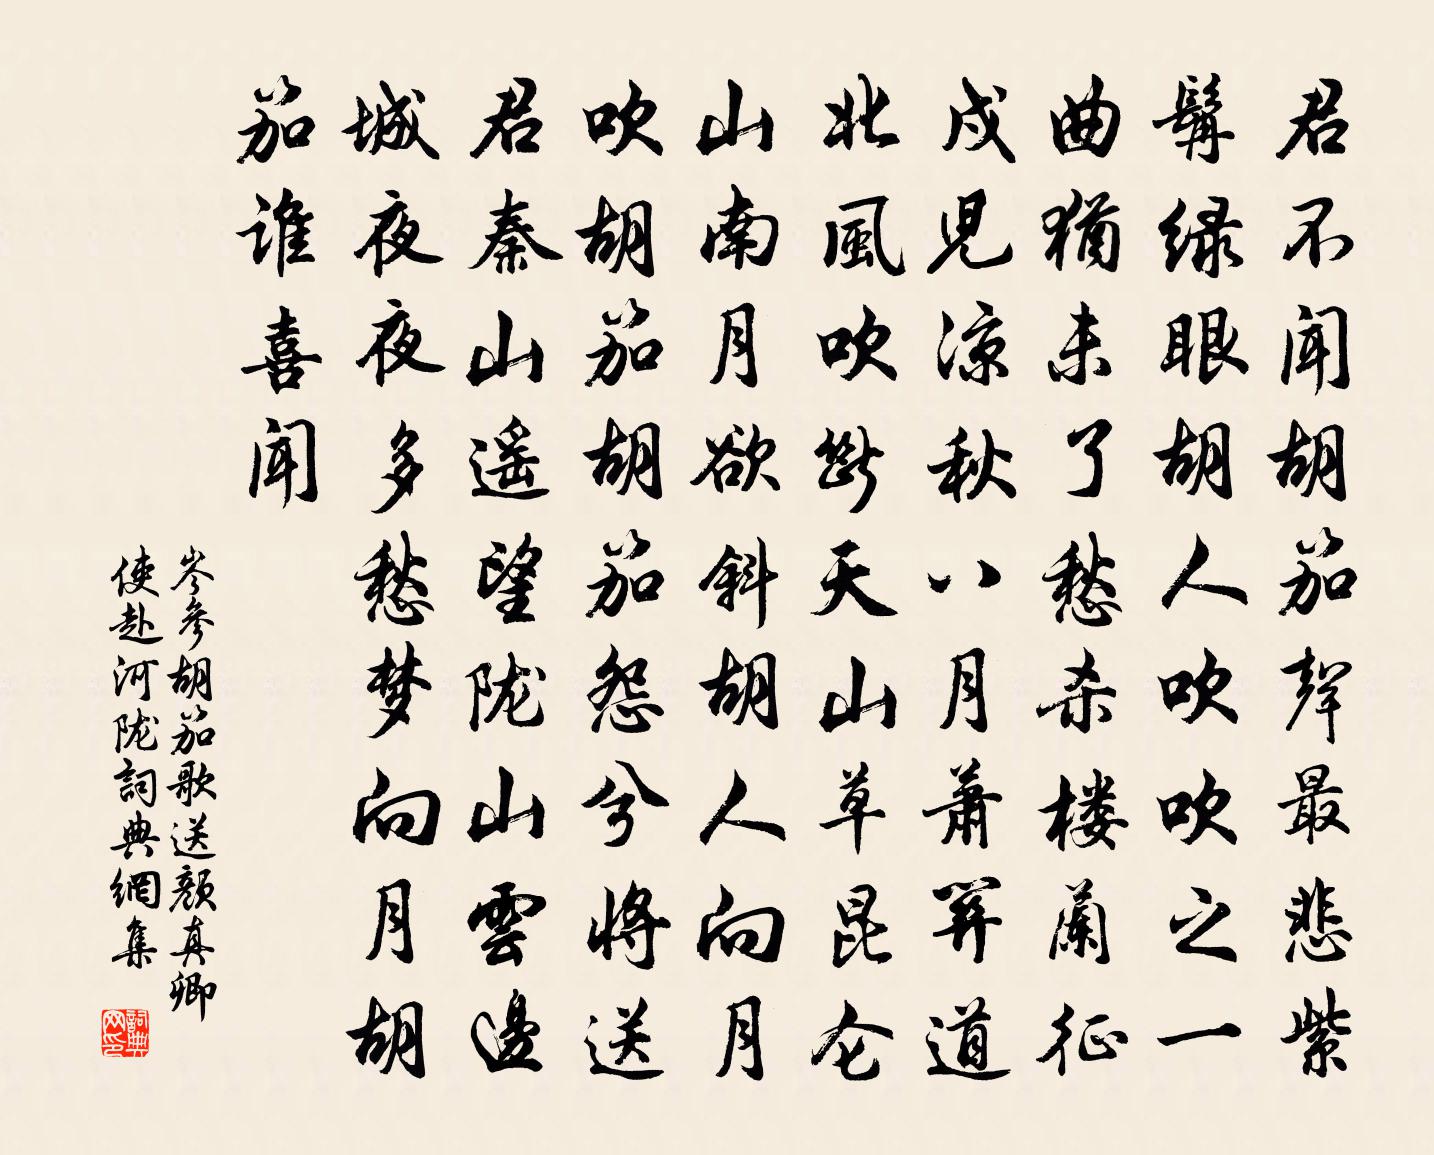 君不闻胡笳聲最悲紫
髯绿眼胡人吹吹之一
曲猶未了愁杀楼蘭征
戍児涼秋八月蕭関道
北風吹斷天山草昆仑
山南月欲斜胡人向月
吹胡笳胡笳怨兮將送
君秦山遥望陇山雲邊
城夜夜多愁梦向月胡
笳谁喜闻
岑參胡笳歌送顏真卿
使赴河陇詞典網集
詞典网印